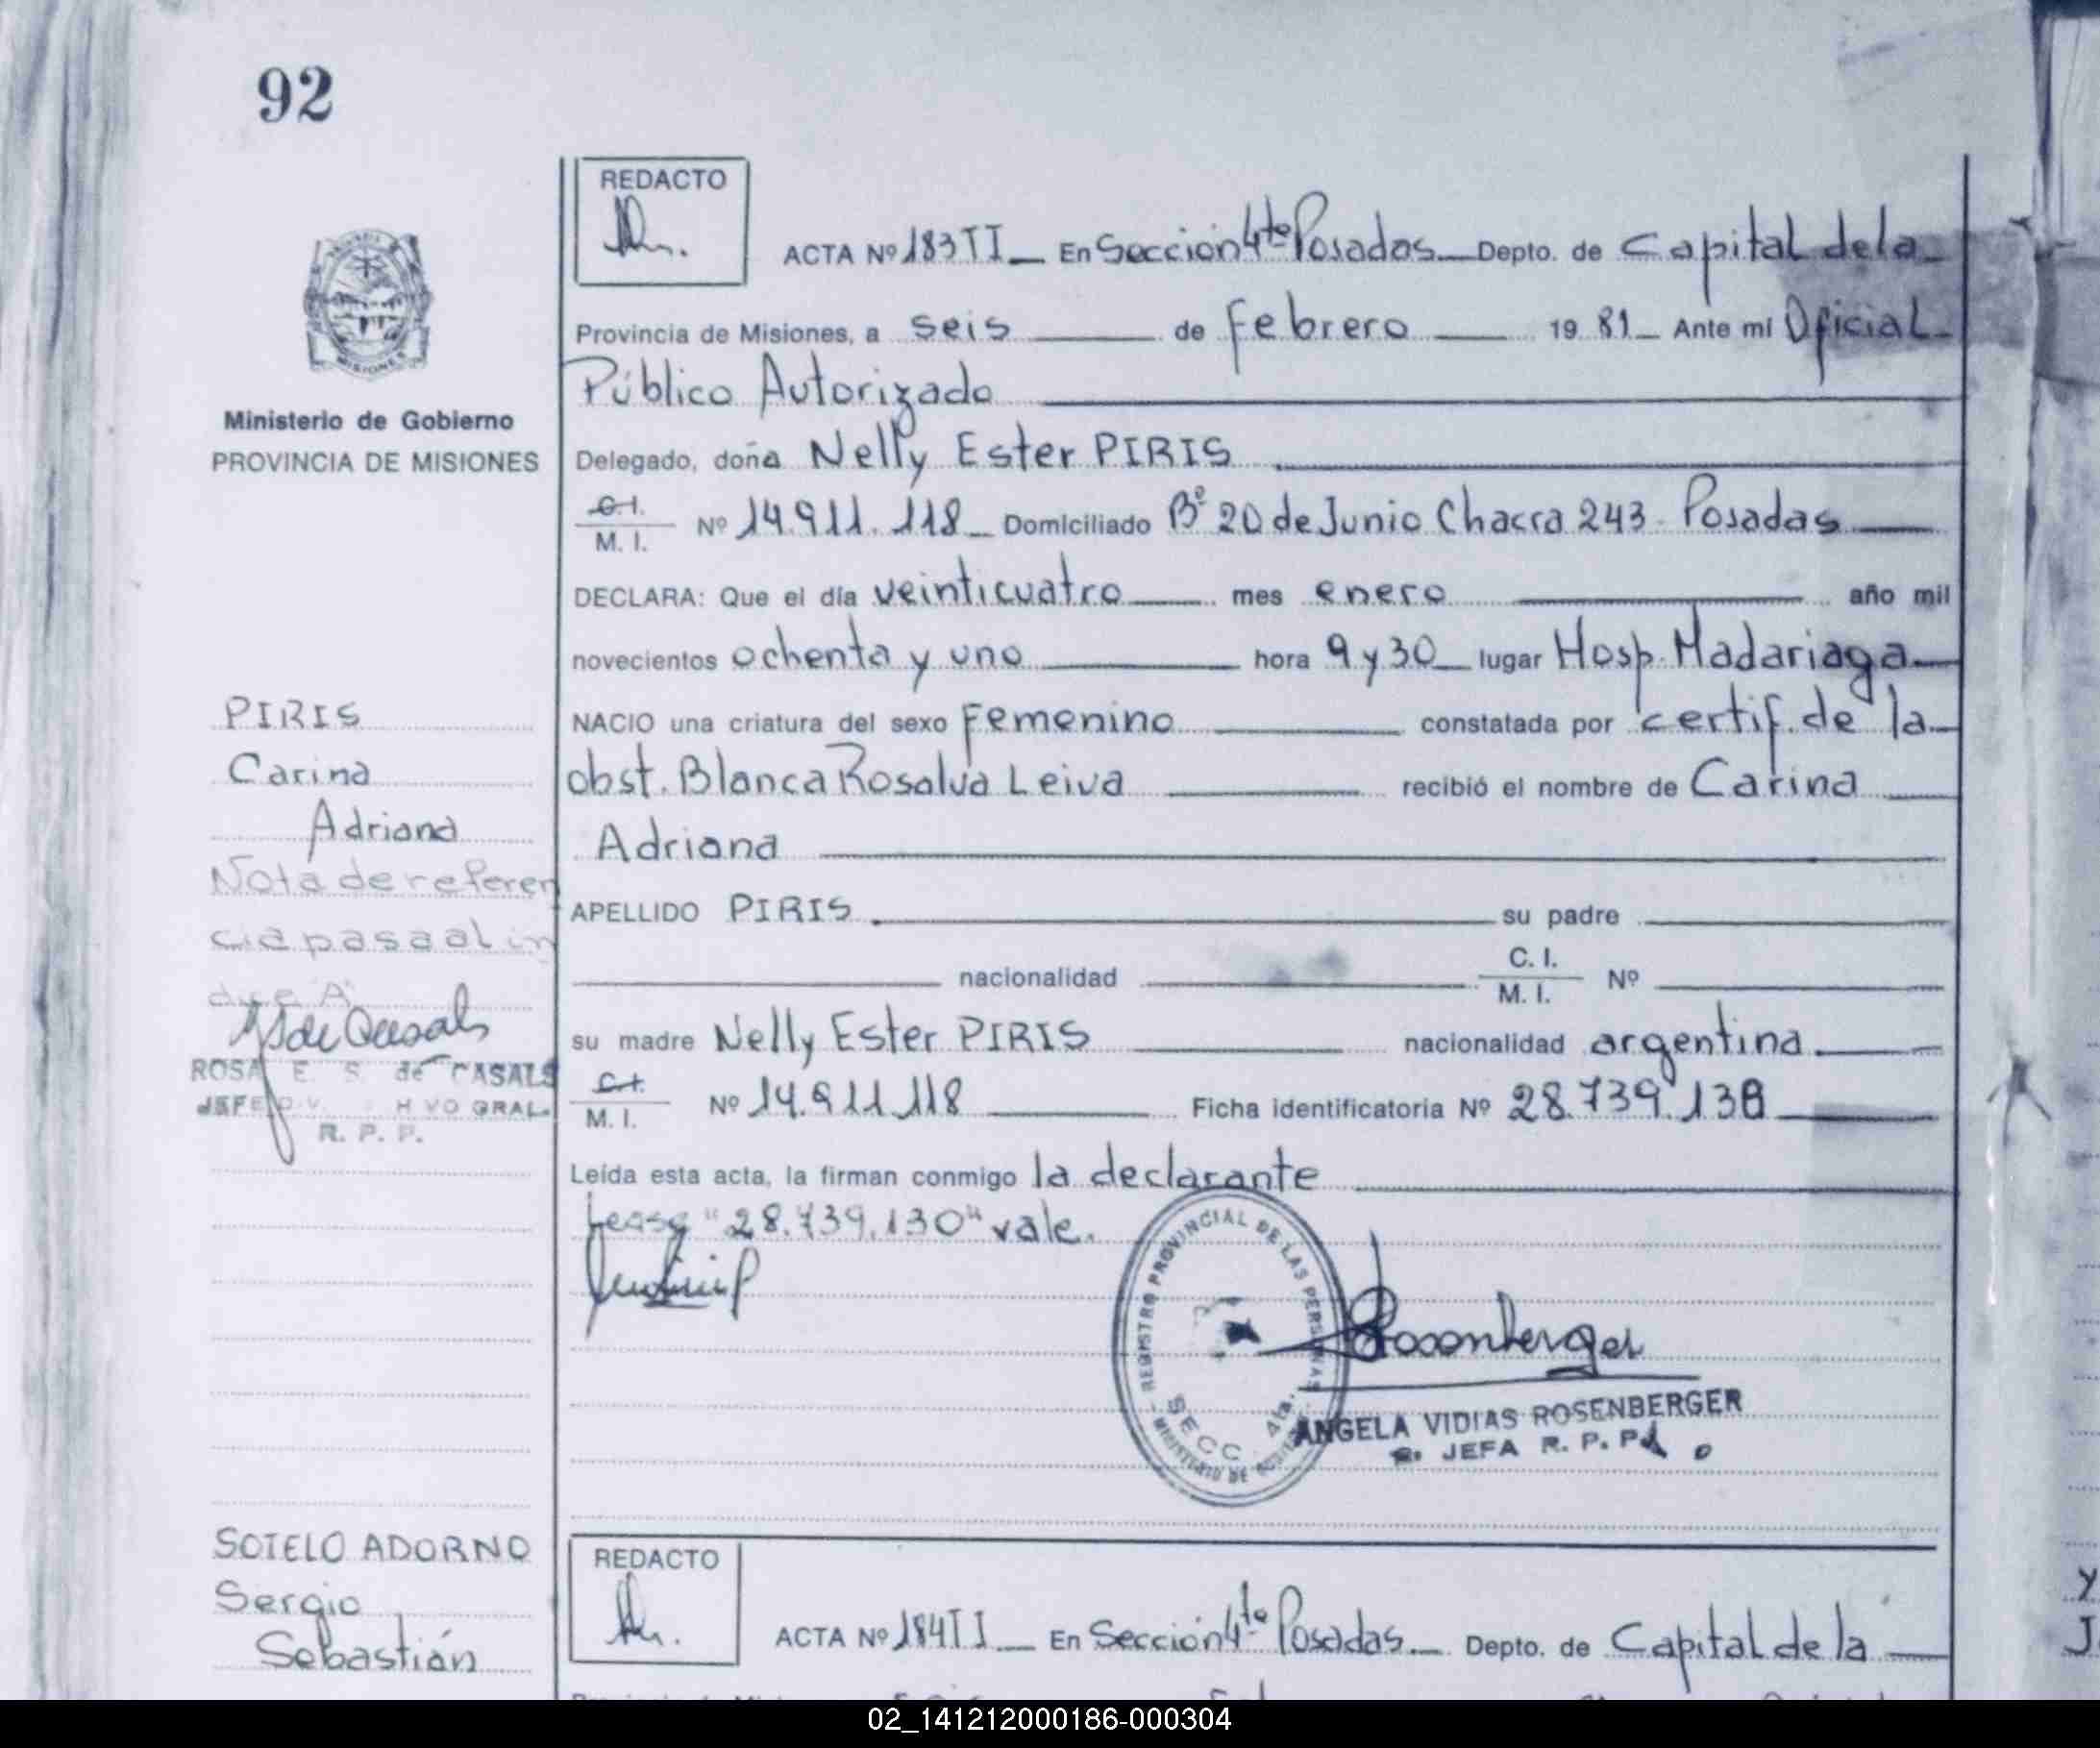 92
REDACTO
ACTA Nº 183 TI En Sección 4ta Posadas Depto. de Capital de la
Provincia de Misiones, a seis de Febrero 19 81 Ante mí Oficial
Público Autorizado
Ministerio de Gobierno
PROVINCIA DE MISIONES
Delegado, doña Nelly Ester PIRIS
C.I.
M. I. Nº 14.911.118 Domiciliado Bº 20 de Junio Chacra 243 - Posadas
DECLARA: Que el día veinticuatro mes enero año mil
novecientos ochenta y uno hora 9 y 30 lugar Hosp. Madariaga
PIRIS
NACIO una criatura del sexo Femenino constatada por certif. de la
Carina
obst. Blanca Rosalva Leiva recibió el nombre de Carina
Adriana
Adriana
Nota de referen
cia pasa al in
dice A
APELLIDO PIRIS su padre
nacionalidad C. I.
M. I. Nº
su madre Nelly Ester PIRIS nacionalidad argentina
ROSA E. S. de CASALS
R. P. P.
C.I.
M. I. Nº 14.911.118 Ficha identificatoria Nº 28.739.138
Leída esta acta, la firman conmigo la declarante
"28.739.130" vale.
REGISTRO PROVINCIAL DE LAS PERSONAS
SECC. 4ta.
MINISTERIO DE
Rosenberger
ANGELA VIDIAS ROSENBERGER
JEFA R. P. P.
SOTELO ADORNO
Sergio
Sebastián
REDACTO
ACTA Nº 184 TI En Sección 4ta Posadas Depto. de Capital de la
02_141212000186-000304